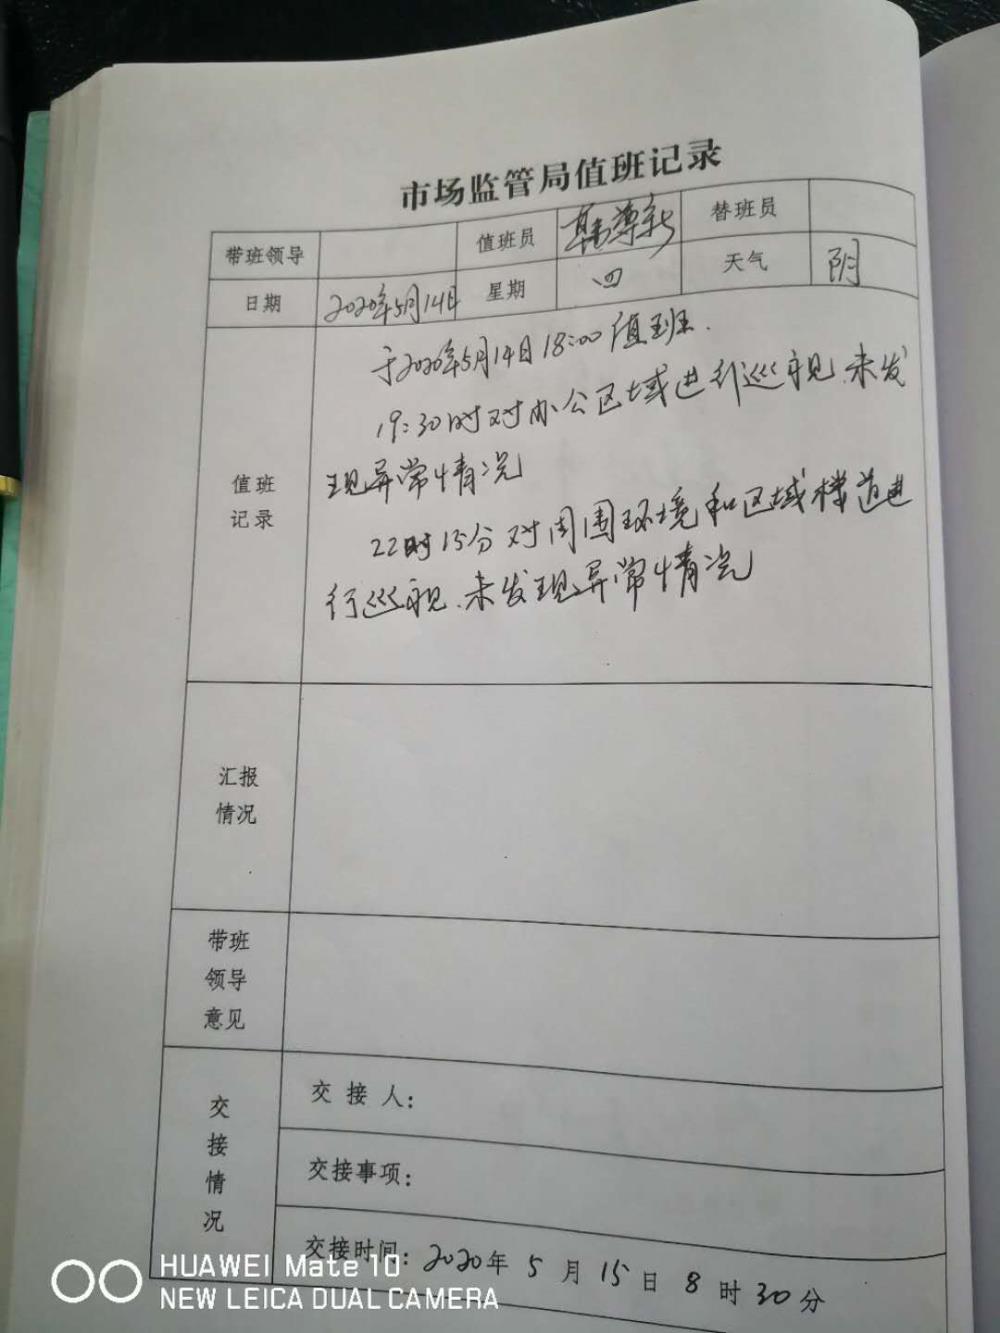 市场监管局值班记录
带班领导 值班员 韩尊新 替班员
日期 2020年5月14日 星期 四 天气 阴
于2020年5月14日18:00值班.
19:30时对办公区域进行巡视.未发
现异常情况
22时15分对周围环境和区域楼道进
行巡视.未发现异常情况
值班
记录
汇报
情况
带班
领导
意见
交
接
情
况
交接人:
交接事项:
交接时间: 2020年5月15日8时30分
HUAWEI Mate 10
NEW LEICA DUAL CAMERA